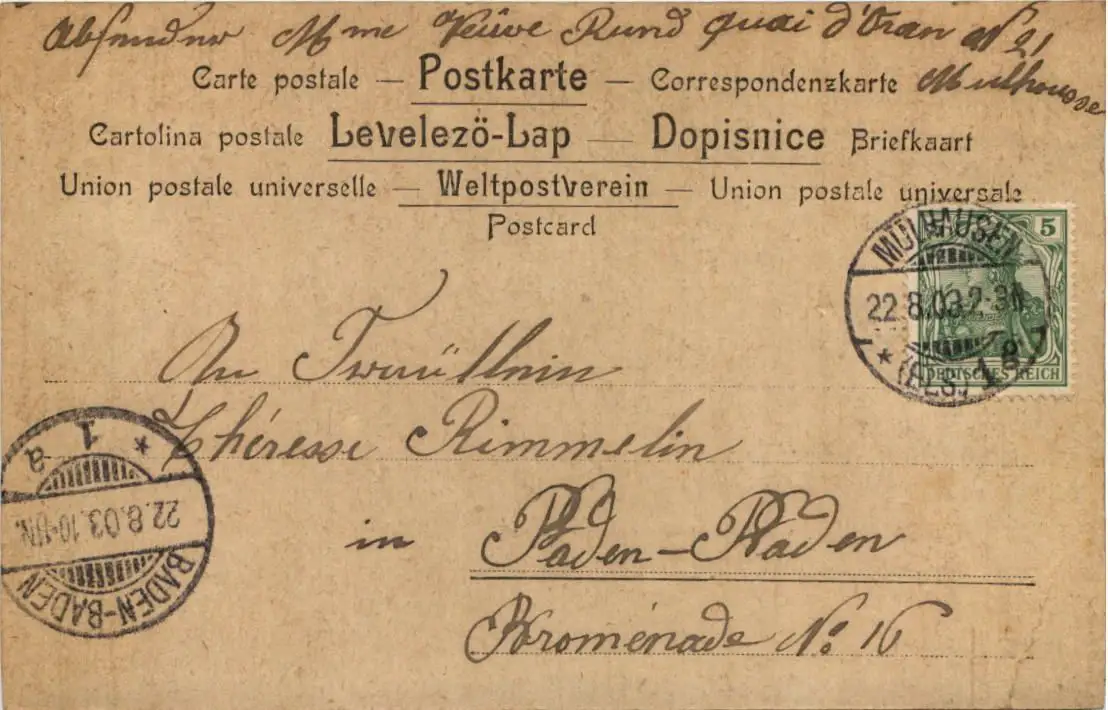 Absender Mme Veuve Rund quai d'Oran № 21
Mulhousse
Carte postale — Postkarte — Correspondenzkarte
Cartolina postale Levelezö-Lap — Dopisnice Briefkaart
Union postale universelle — Weltpostverein — Union postale universale
Postcard
5
DEUTSCHES REICH
MÜLHAUSEN
22.8.03.2-3N.
* (ELS.) 1
An Fraüllein
Théresse Rimmelin
in Baden-Baden
Promenade No 16
BADEN-BADEN
22.8.03.10-11N.
* 1 a